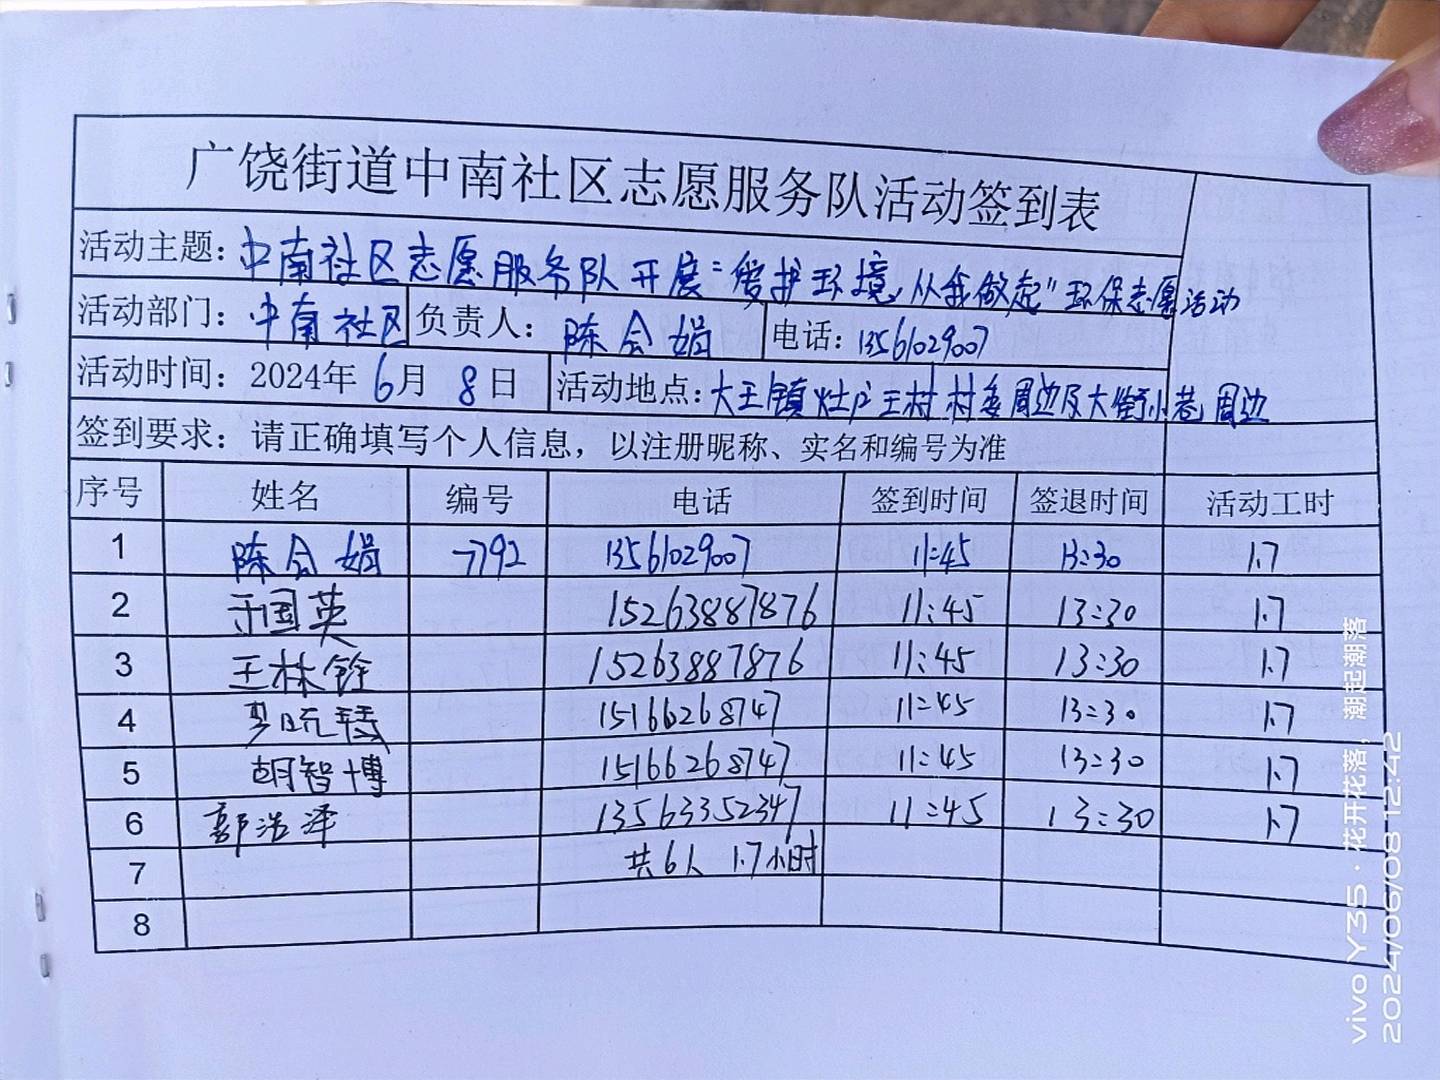 广饶街道中南社区志愿服务队活动签到表
活动主题：中南社区志愿服务队开展“爱护环境，从我做起”环保志愿活动
活动部门：中南社区 负责人：陈会娟 电话：13561029007
活动时间：2024年6月8日 活动地点：大王镇灶户王村村委周边及大街小巷周边
签到要求：请正确填写个人信息，以注册昵称、实名和编号为准
序号 姓名 编号 电话 签到时间 签退时间 活动工时
1 陈会娟 7792 13561029007 11:45 13:30 1.7
2 于国英 15263887876 11:45 13:30 1.7
3 王林铨 15263887876 11:45 13:30 1.7
4 15166268747 11:45 13:30 1.7
5 胡智博 15166268747 11:45 13:30 1.7
6 郭浩泽 13563352347 11:45 13:30 1.7
7 共6人 1.7小时
8
vivo Y35 · 花开花落，潮起潮落
2024/06/08 12:42